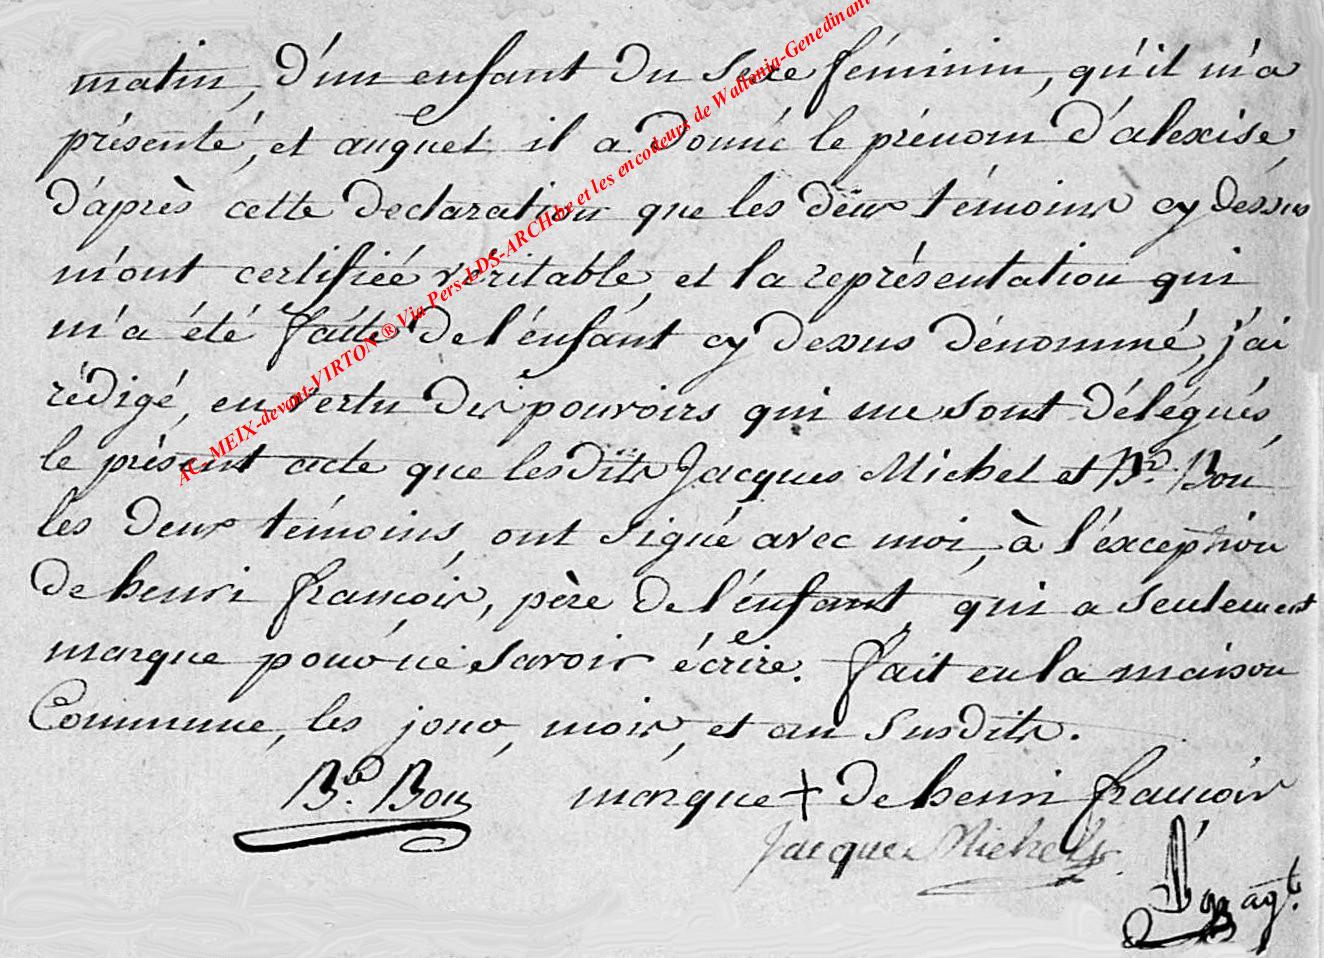 matin, d'un enfant du sexe féminin, qu'il m'a
présenté, et auquel il a donné le prénom d'alexise
d'après cette declaration que les deux témoins cy déssus
m'ont certifiée véritable, et la représentation qui
m'a été faite de l'énfant cy dessus dénommé, j'ai
rédigé, en vertu des pouvoirs qui me sont délégués,
le présent acte que lesdits Jacques Michel et Bd. Bou
les deux témoins, ont signé avec moi, à l'éxception
de henri françois, père de l'énfant, qui a seulement
marque pour ne savoir écrire. fait en la maison
Commune, les jour, mois, et an susdits.
Bd. Bou marque + de henri françois
Jacque Michel
agt.
AC-MEIX-devant-VIRTON ® Via Pers-LDS-ARCH.be et les encodeurs de Wallonia-Genedinant